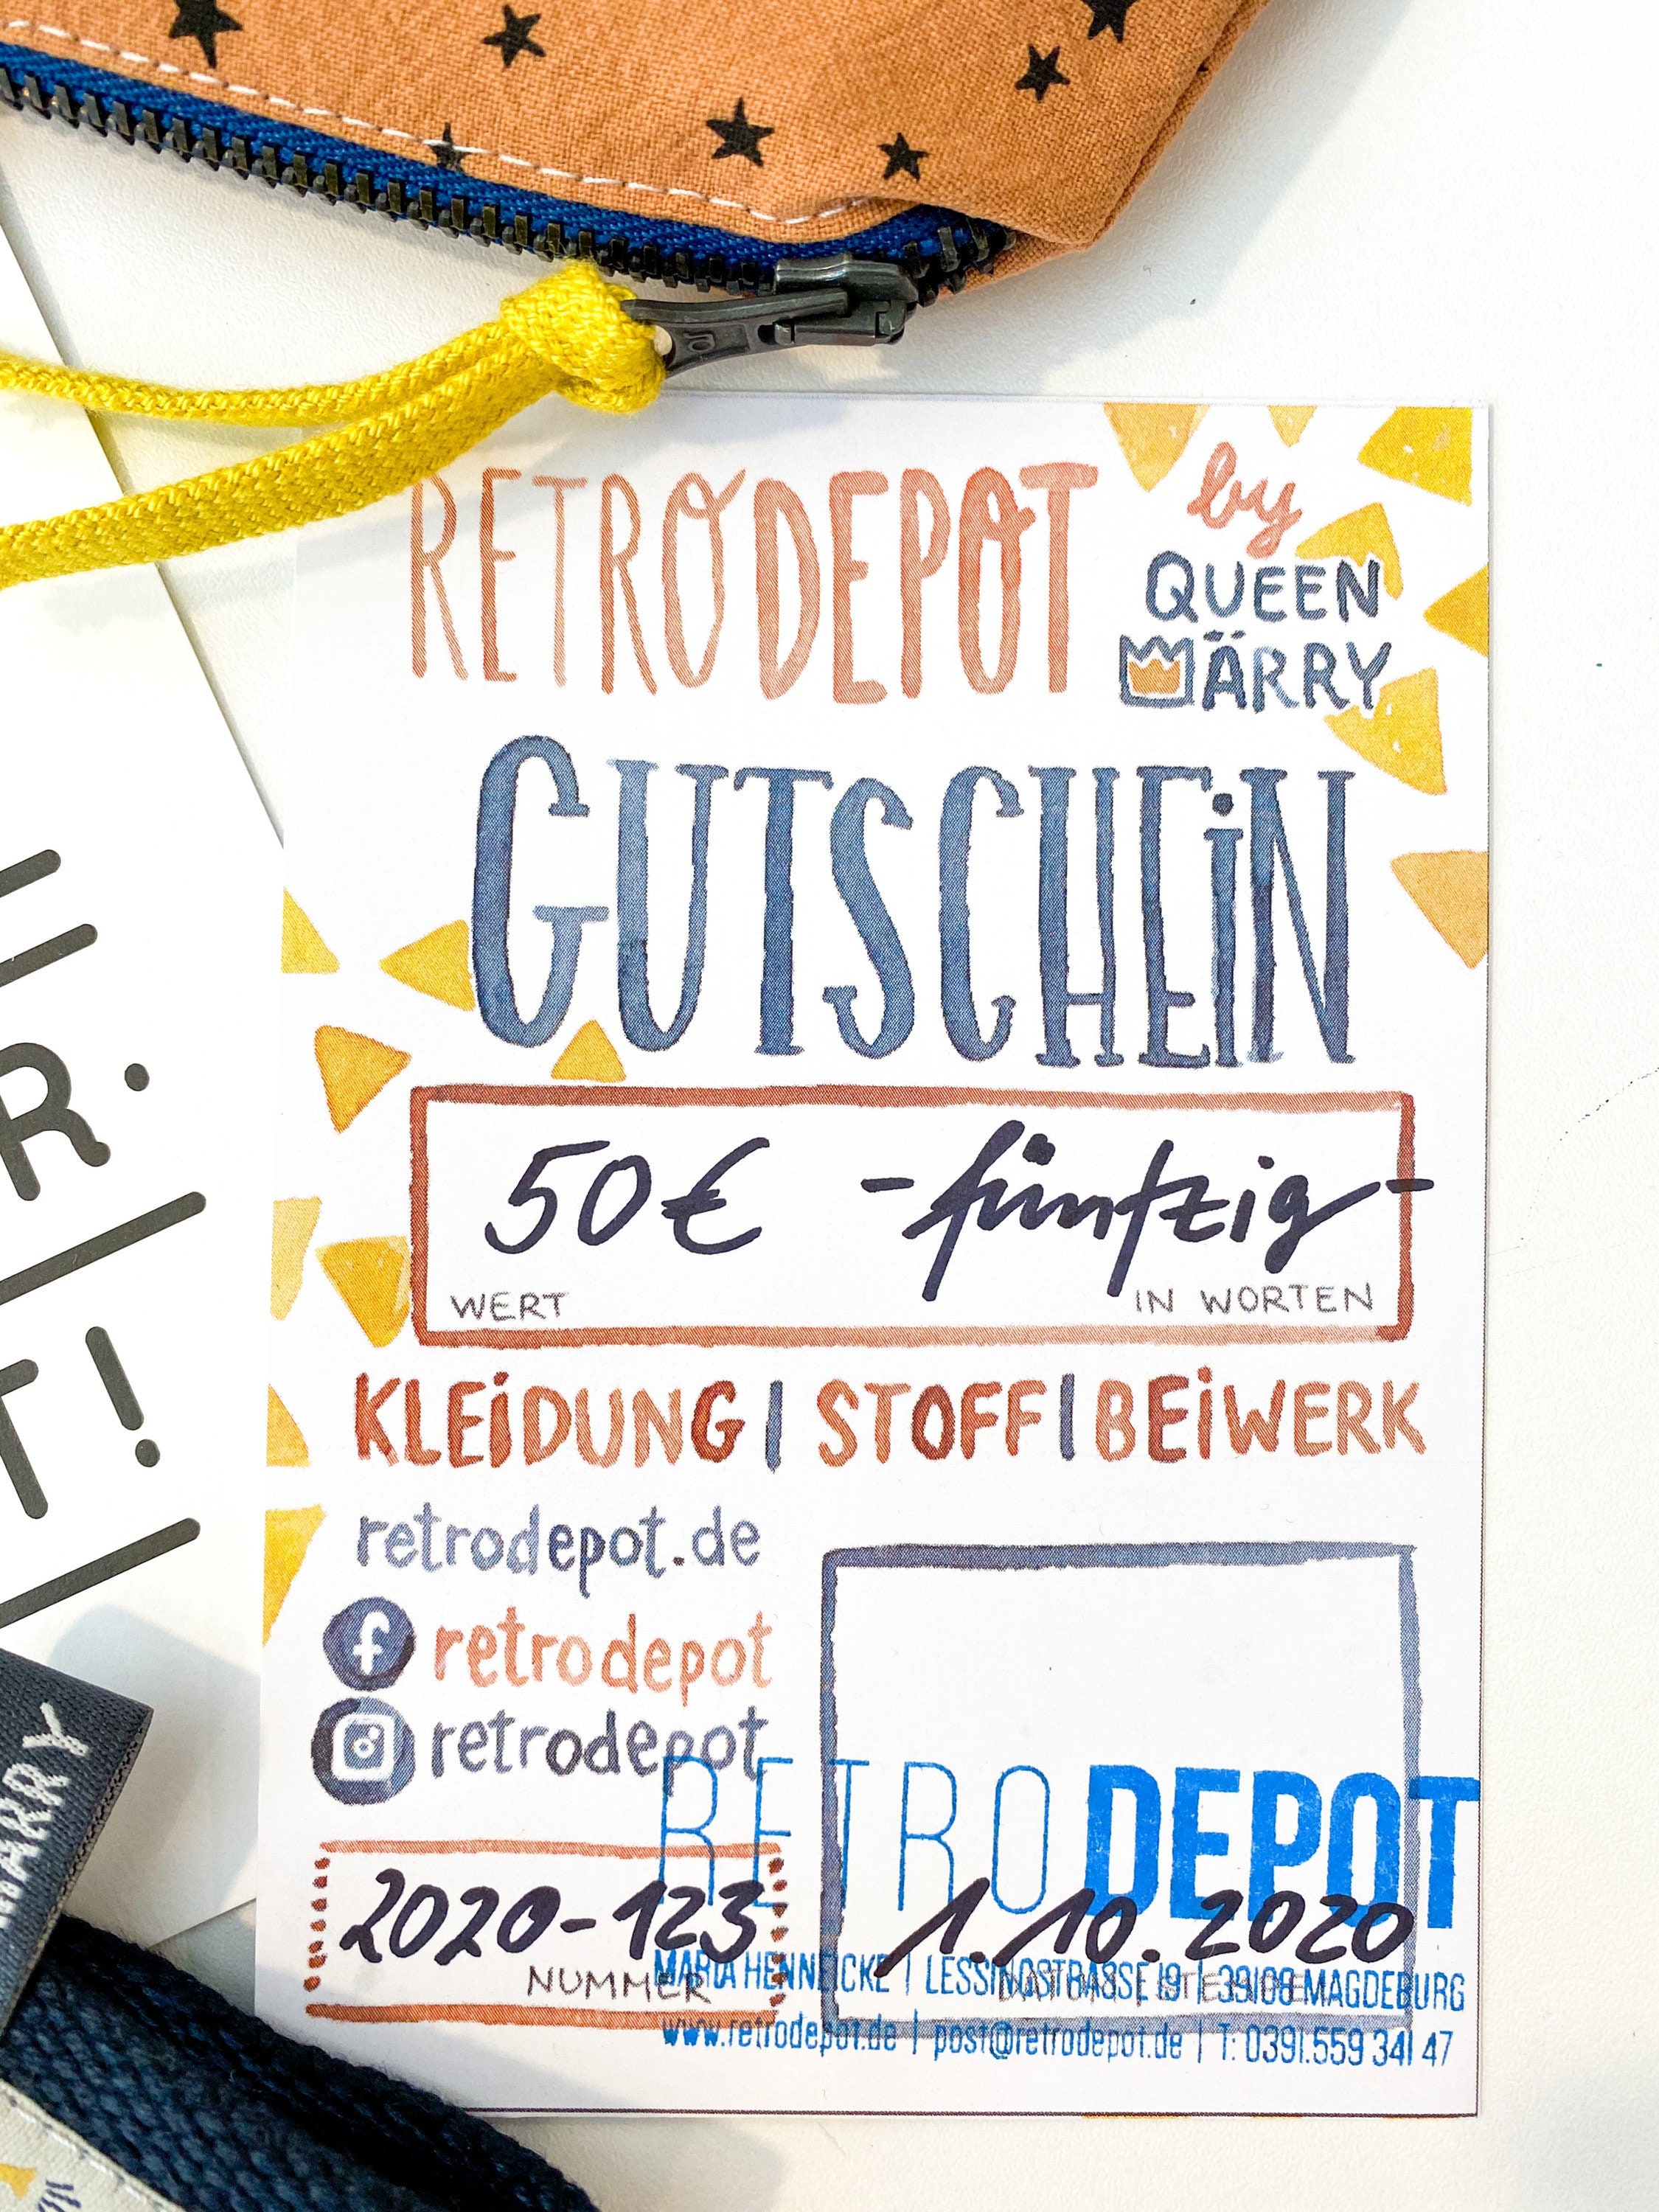 RETRODEPOT
by
QUEEN
MÄRRY
GUTSCHEIN
50€ -fünfzig-
WERT IN WORTEN
KLEIDUNG | STOFF | BEIWERK
retrodepot.de
retrodepot
retrodepot
RETRODEPOT
2020-123 1.10.2020
NUMMER
MARIA HENNEICKE | LESSINGSTRASSE 19 | 39108 MAGDEBURG
www.retrodepot.de | post@retrodepot.de | T: 0391.559 341 47
E
R.
T!